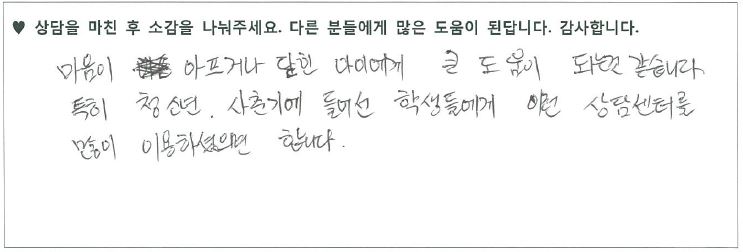 ♥ 상담을 마친 후 소감을 나눠주세요. 다른 분들에게 많은 도움이 된답니다. 감사합니다.
마음이 아프거나 닫힌 아이에게 큰 도움이 되는것 같습니다.
특히 청소년, 사춘기에 들어선 학생들에게 이런 상담센터를
많이 이용하셨으면 합니다.